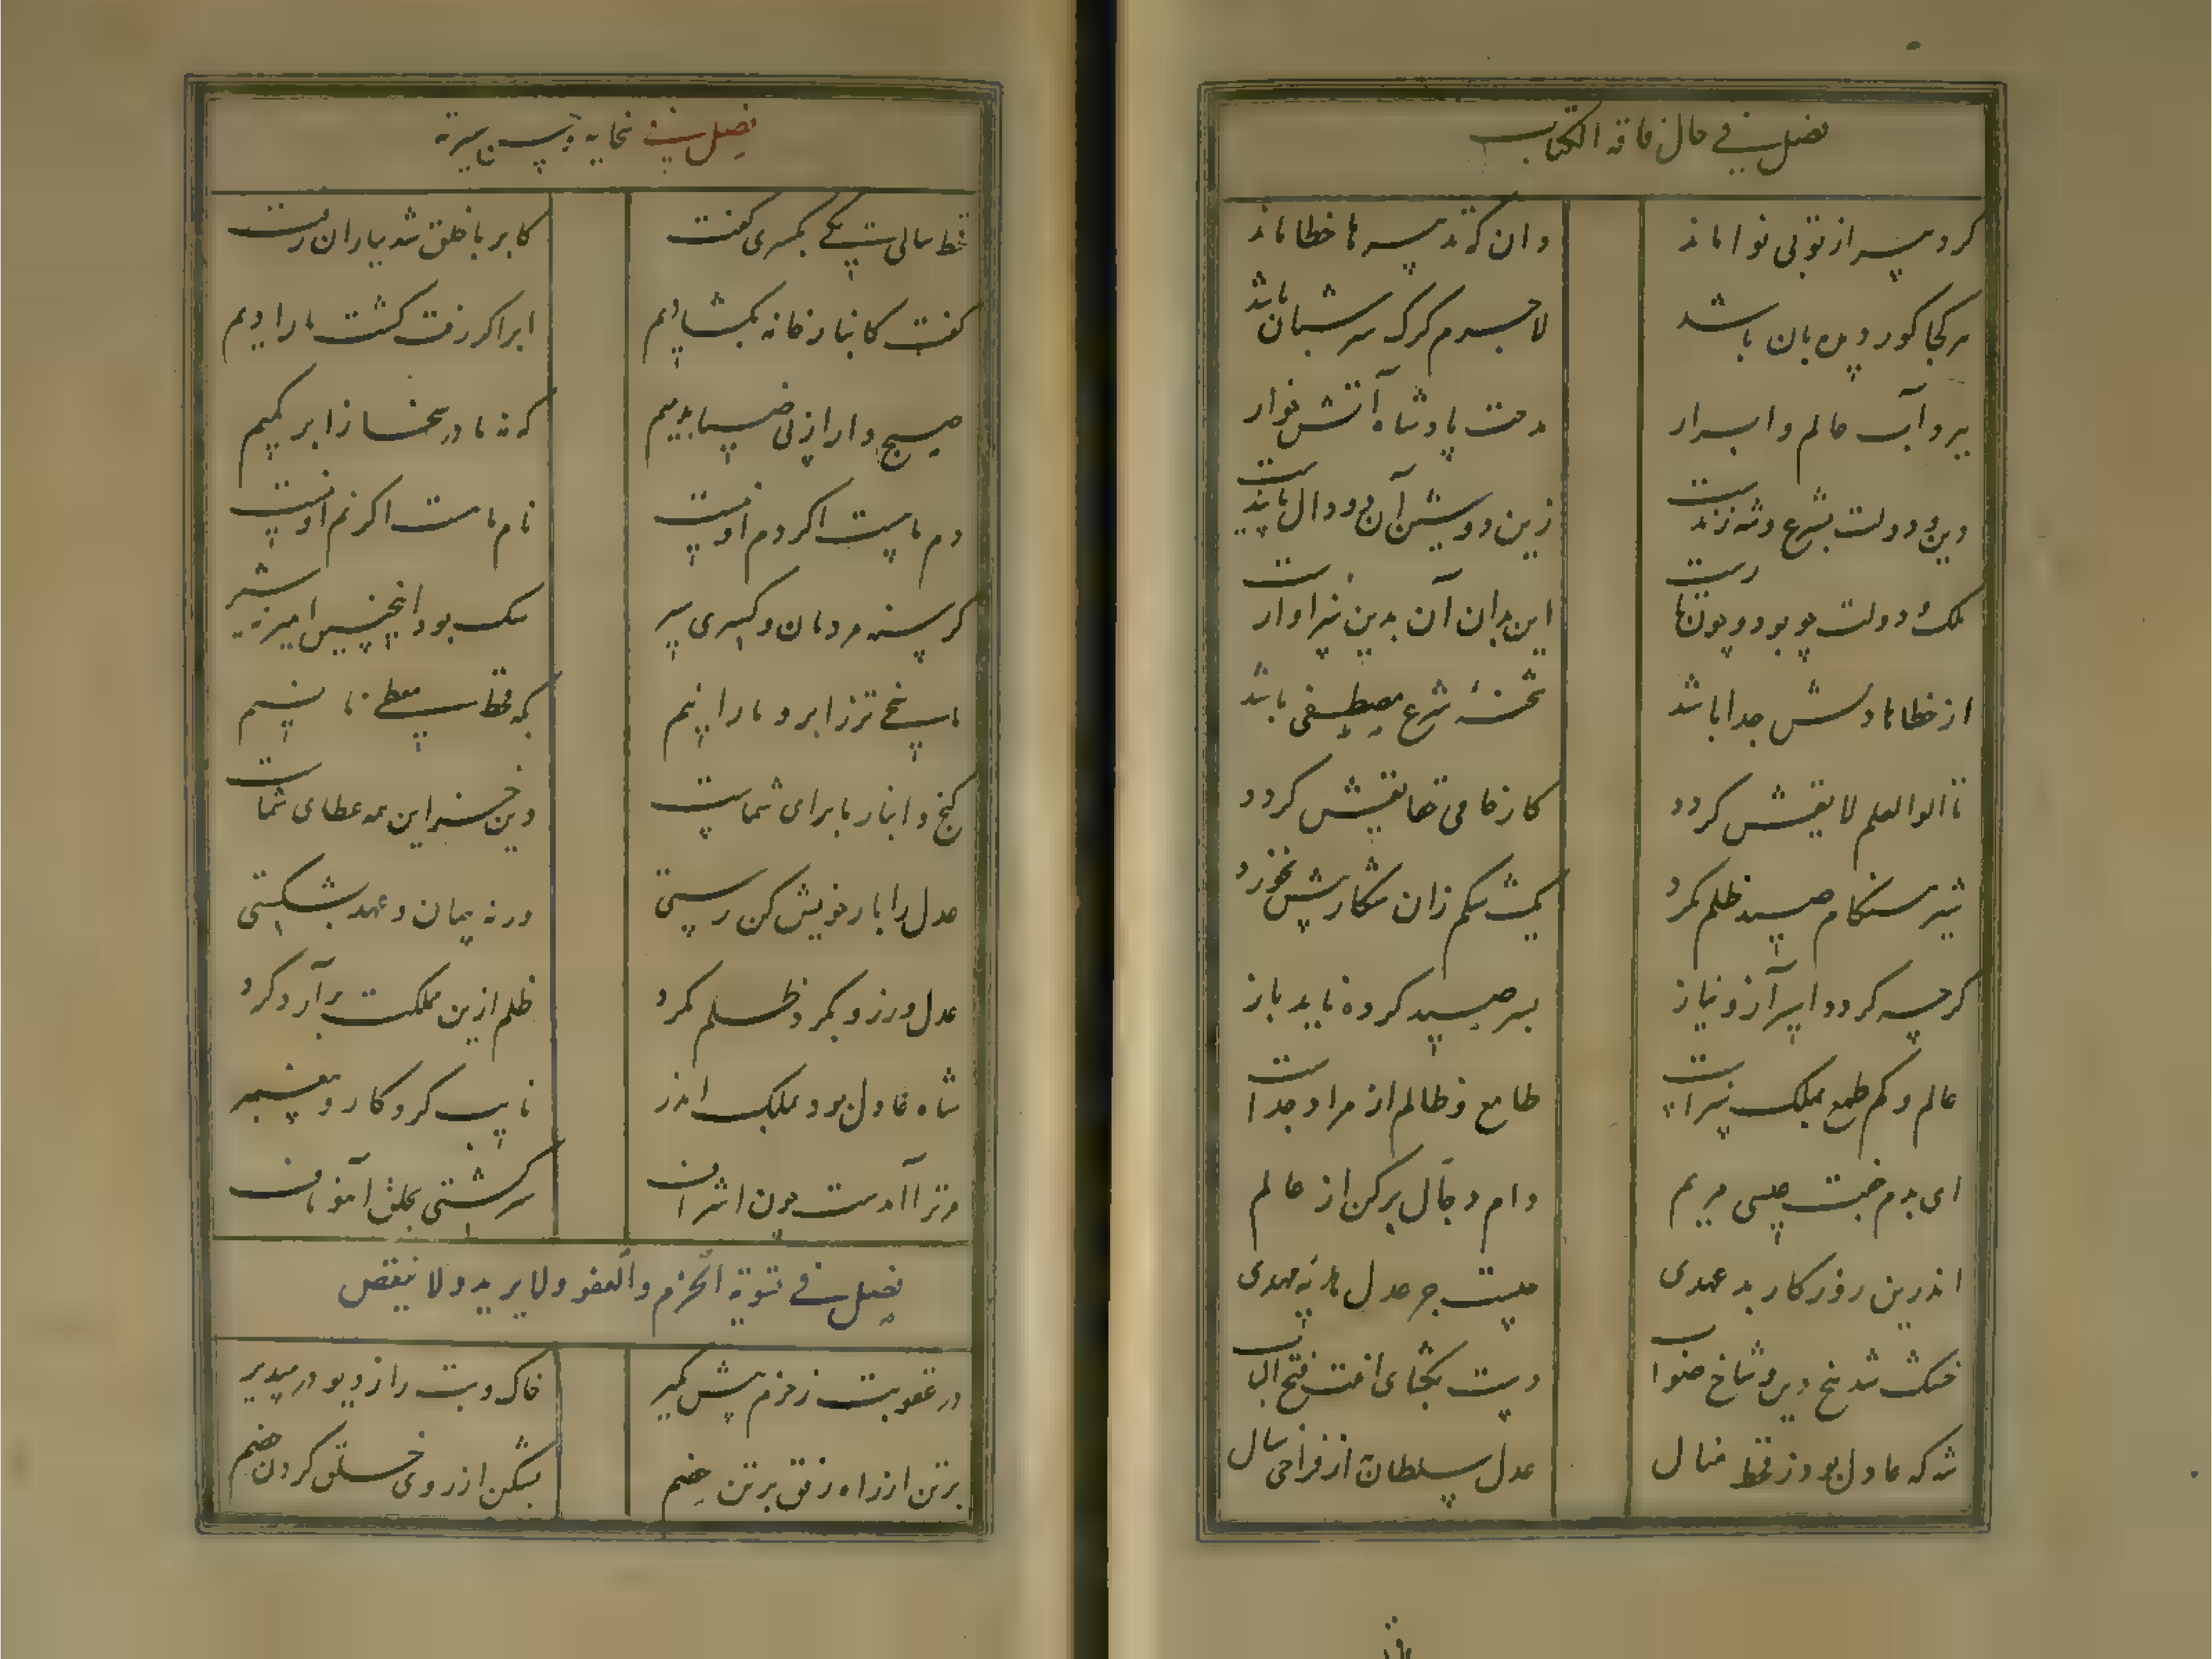 فصل فی حال فاقه الکتاب
کرد سپر از تو بی نوا ماند
وان کت سپه خطا ماند
هر کجا کور دیده بان باشد
لاجرم گرگ سرشبان باشد
ببرد آب عالم و ابرار
مدحت پادشاه آتش خوار
دین و دولت بشرع و شه زنده ست
زین دو بیش آن دو دال پاینده ست
ملک و دولت چو بود و چون تار است
این بدان آن بدین سزاوار است
از خطا دلش جدا باشد
شحنه شرع مصطفی باشد
تا اولو العلم لایقش گردد
کار فامی حقایقش گردد
شیر هنگام صید ظلم نکرد
یک شکم زان شکار بیش نخورد
گرچه گردد اسیر آز و نیاز
بسر صید کرده ناید باز
عالم و کم طمع بملک سزاست
طامع و ظالم از مراد جداست
ای بدم جفت عیسی مریم
دام دجال برکن از عالم
اندرین روزگار بد عهدی
چیست جز عدل هدیه مهدی
خشک شد بیخ دین و شاخ صواب
دست بگشای افتتح الباب
شه که عادل بود ز قحط منال
عدل سلطان به از فراخی سال
فصل فی حکایه و حسن سیرته
قحط سالی یکی بکسری گفت
کابر با خلق شد بباران زفت
گفت کانبار خانه بگشادیم
ابر اگر زفت گشت ما رادیم
صبح وار از پی ضیا باریم
که نه ما در سخا ز ابر کمیم
دم ما هست اگر دم او نیست
نم ما هست اگر نم او نیست
گرسنه مردمان و کسری سیر
سگ بود اینچنین امیر نه شیر
ما سخی تر ز ابر و بارانیم
که قحط معطی نانیم
گنج و انبار ما برای شماست
وین خزاین همه عطای شماست
عدل را یار خویش کن رستی
ورنه پیمان و عهد بشکستی
عدل ورزد و بگرد ظلم نگرد
ظلم ازین مملکت برآرد گرد
شاه عادل بود بملک اندر
نایب کردگار و پیغمبر
مر ترا آمدست چون اشراف
سرکشتی بخلق آموزاف
فصل فی تقویة الحزم والعفو ولا یرید ولا ینقص
در عقوبت ز حزم پیش مگیر
خاک دست را ز دیو در مپذیر
برتن از راه رفق برتن خشم
بشکن از روی خلق گردن خشم